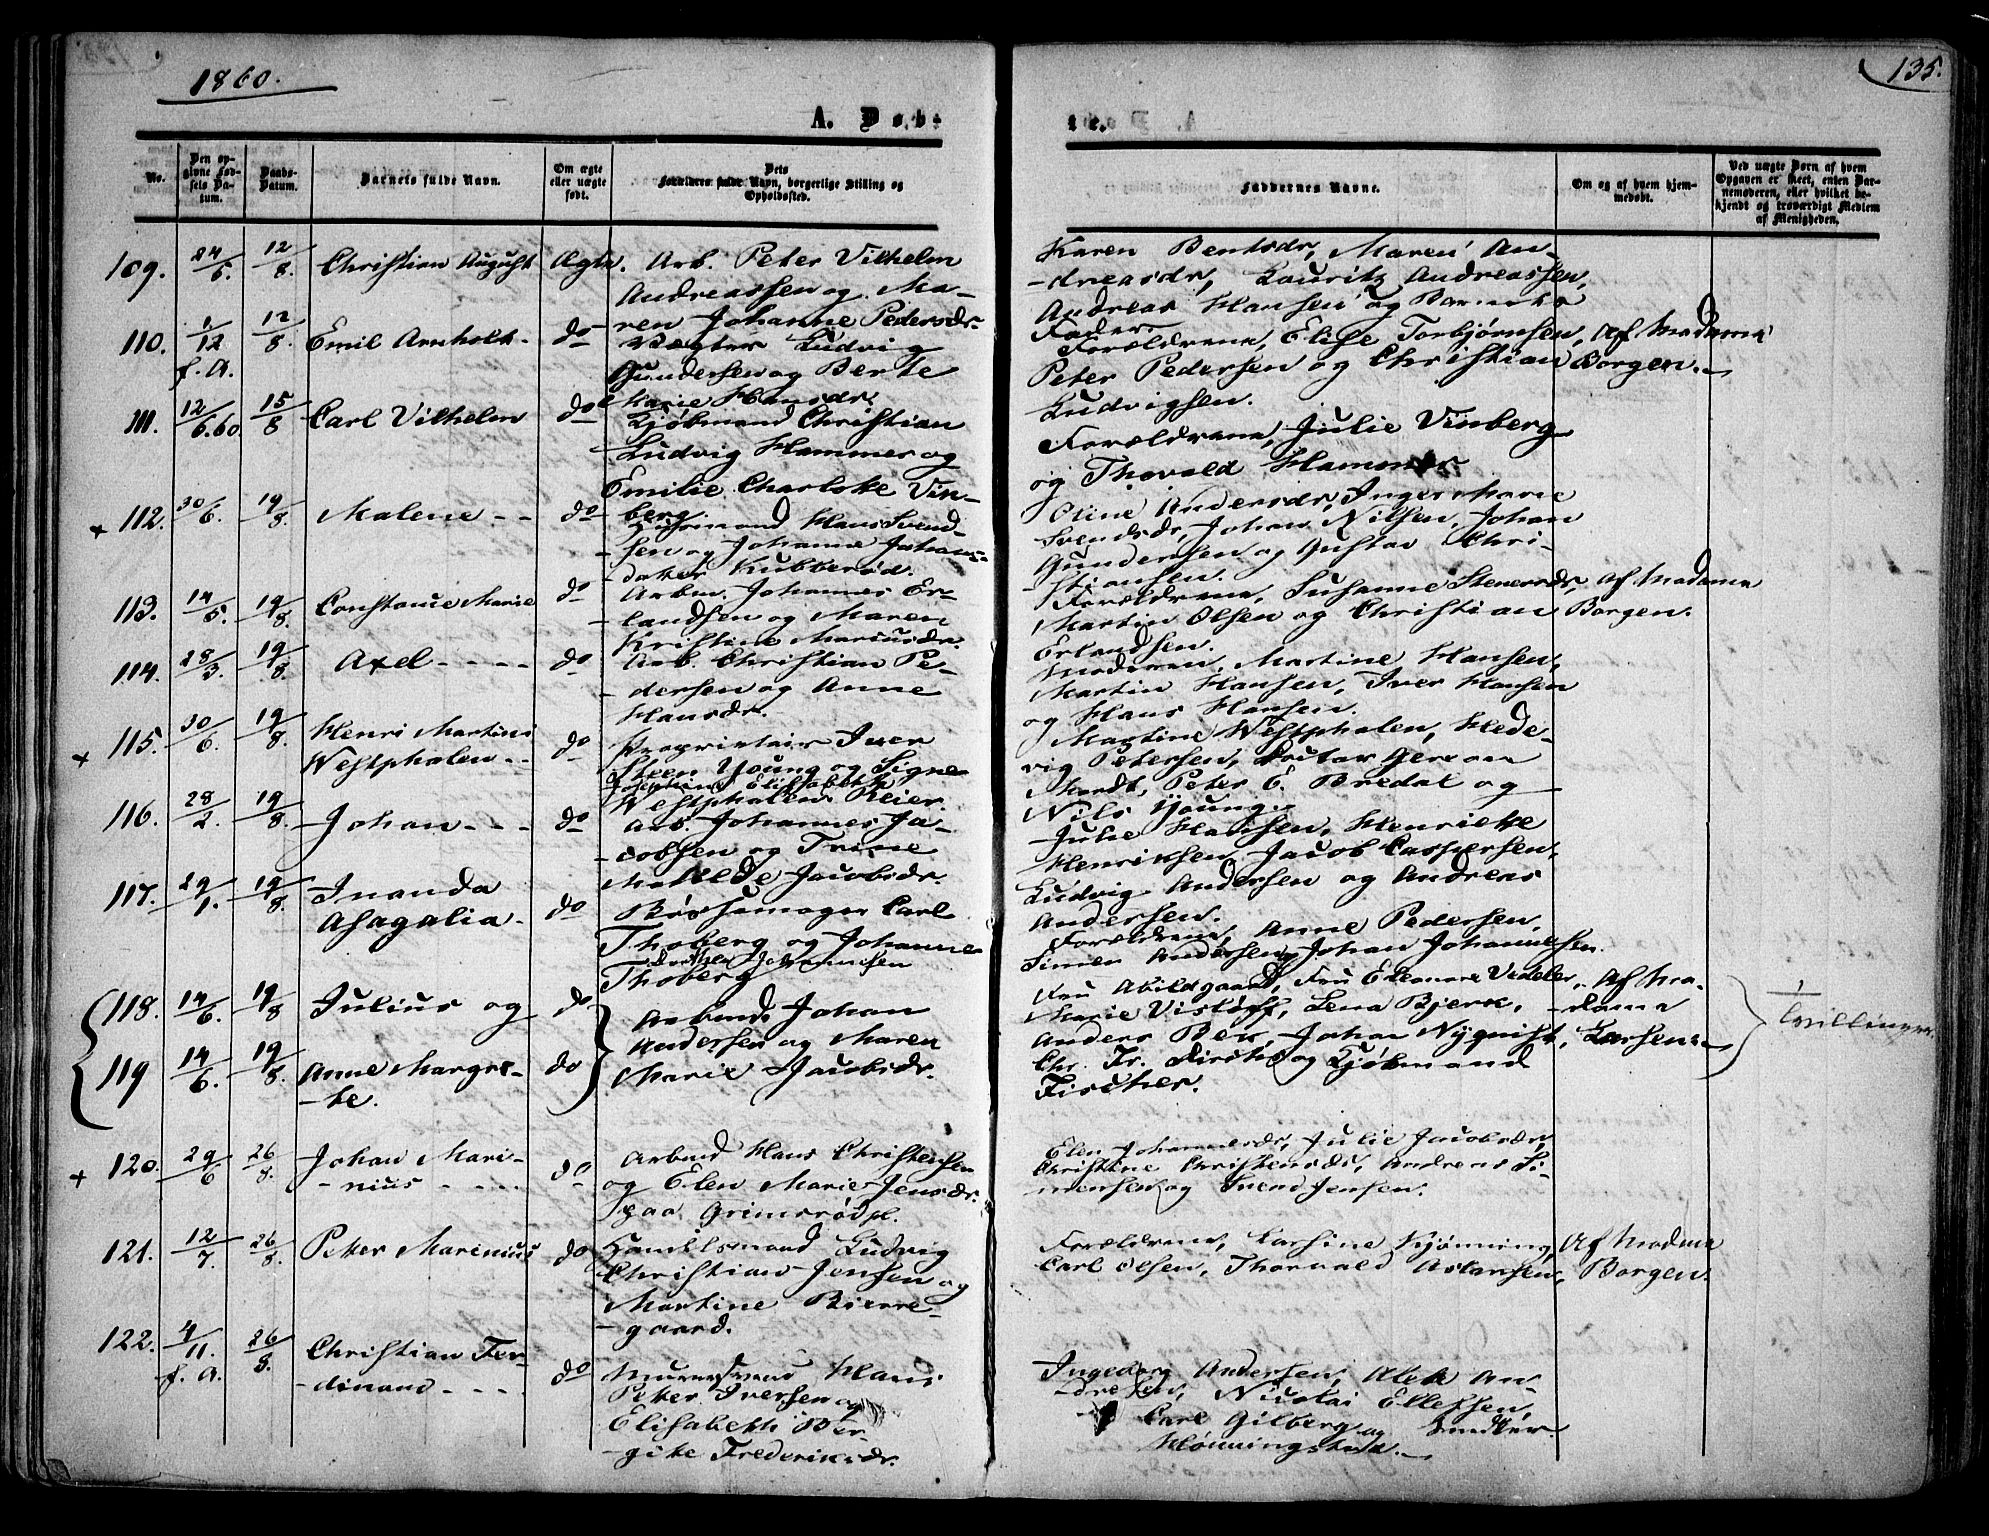 1860.
135.
A. Døbte.
No.
Den opgivne Fødsels Datum.
Daabs-Datum.
Barnets fulde Navn.
Om ægte eller uægte født.
Dets Forældres fulde Navn, borgerlige Stilling og Opholdssted.
Faddernes Navne.
Om og af hvem hjemmedøbt.
Ved uægte Børn af hvem Opgaven er skeet, enten Barnemoderen, eller hvilket bekjendt og troværdigt Medlem af Menigheden.
109. 24/5. 12/8. Christian August Ægte. Arb. Peter Vilhelm
Andreassen og Ma-
ren Johanne Pedersdr.
Karen Bentsdr, Maren An-
dreasdr, Lauritz Andreassen,
Andreas Hansen og Barnets
Fader.
110. 1/12 f. A. 12/8. Emil Arnholt do
Vægter Ludvig
Gundersen og Berte
Marie Hansdr.
Forældrene, Elise Torbjørnsen,
Peter Pedersen og Christian
Ludvigsen.
Af Madame
Borgen.
111. 12/6.60. 15/8 Carl Vilhelm do
Kjøbmand Christian
Ludvig Hammer og
Emilie Charlotte Vin-
berg.
Forældrene, Julie Vinberg
og Thovald Hammer
112. 30/6. 19/8. Malene do
Huusmand Hans Svend-
sen og Johanne Johans-
datter Kubberød.
Oline Andersdr, Inger Marie
Svendsdr, Johan Nilsen, Johan
Gundersen og Gustav Chri-
stiansen.
113. 14/5. 19/8. Constance Marie do
Arbm. Johannes Er-
landsen og Maren
Kristine Mariusdr.
Forældrene, Susanne Stenersdr,
Martin Olsen og Christian
Erlandsen.
Af Madame
Borgen.
114. 28/3. 19/8. Axel do
Arb. Christian Pe-
dersen og Anne
Hansdr.
Moderen, Martine Hansen,
Martin Hansen, Iver Hansen
og Hans Hansen.
115. 30/6. 19/8. Henri Martini
Westphalen do
Proprietair Iver
Steen Young og Signe
Josephine Elisabeth
Westphalen Reier
Martine Westphalen, Hede-
vig Petersen,
Peter E. Bredal og
Nils Young.
116. 28/2. 19/8. Johan do
Arb. Johannes Ja-
cobsen og Trine
Mathilde Jacobsdr.
Julie Hansen, Henriette
Henriksen, Jacob Caspersen,
Ludvig Andersen og Andreas
Andersen.
117. 29/1. 19/8. Inanda
Asagalia do
Bøssemager Carl
Thoberg og Johanne
Dorthea Johannesen
Thoberg
Forældrene, Anne Pedersen,
Simen Andersen, Johan Johannesen.
118. 14/6. 19/8 Julius og do
119 14/6. 19/8. Anne Margre-
the. do
Arbmd. Johan
Andersen og Maren
Marie Jacobsdr.
Fru Abildgaard, Fru Eleonore Vedeler,
Marie Vistoff, Lena Bjerk,
Anders Bek, Johan Nyquist,
Chr. Fr. og Kjøbmand
Fischer.
Af Ma-
dame
Larsen.
Tvillinger.
120. 29/6 26/8. Johan Mari-
nius do
Arbmd Hans Christensen
og Elen Marie Jensdr.
paa Grimsrødpl.
Elen Johannesdr, Julie Jacobsdr,
Christine Christensdr, Andreas Si-
mensen og Svend Jensen.
121. 12/7. 26/8. Peter Marinius do
Handelsmand Ludvig
Christian Jensen og
Martine Bierre-
gaard.
Forældrene, Larsine Kjønning,
Carl Olsen, Thorvald Aslaksen,
Af Madme
Borgen.
122. 4/11. f. A. 26/8. Christian Fer-
dinand do
Murersvend Hans
Peter Iversen og
Elisabeth Ber-
gite Frederiksdr.
Ingeborg Andersen, An-
dresen, Nicolai Ellefsen,
Carl Gilberg og
Hønningstad.